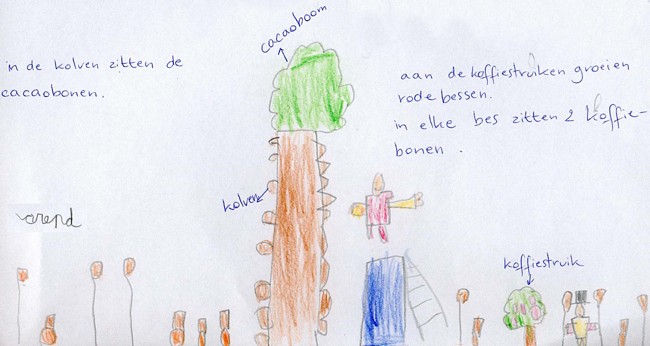 in de kolven zitten de
cacaobonen.
cacaoboom
aan de koffiestruiken groeien
rode bessen.
in elke bes zitten 2 koffie-
bonen.
kolven
arend
koffiestruik